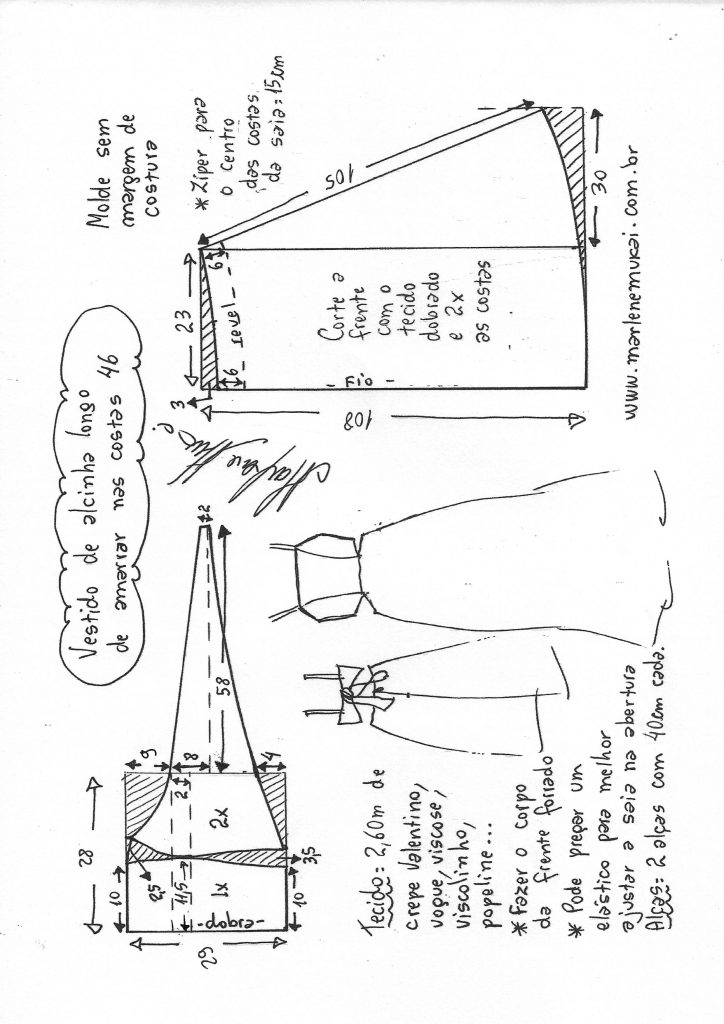 Vestido de alcinha longo
de amarrar nas costas 46
Molde sem
margem de
costura
* Zíper para
o centro
das costas
da saia = 15cm
28
9
8
2
4
58
2
2x
1x
10
2,5
11,5
3,5
10
29
- dobra -
23
3
6
6
- revel -
105
30
108
- Fio -
Corte a
frente
com o
tecido
dobrado
e 2x
as costas
www.marlenemukai.com.br
Tecido: 2,60m de
crepe Valentino,
voque, viscose,
viscolinho,
popeline...
* Fazer o corpo
da frente forrado
* Pode pregar um
elástico para melhor
ajustar a saia na abertura
Alças = 2 alças com 40cm cada.